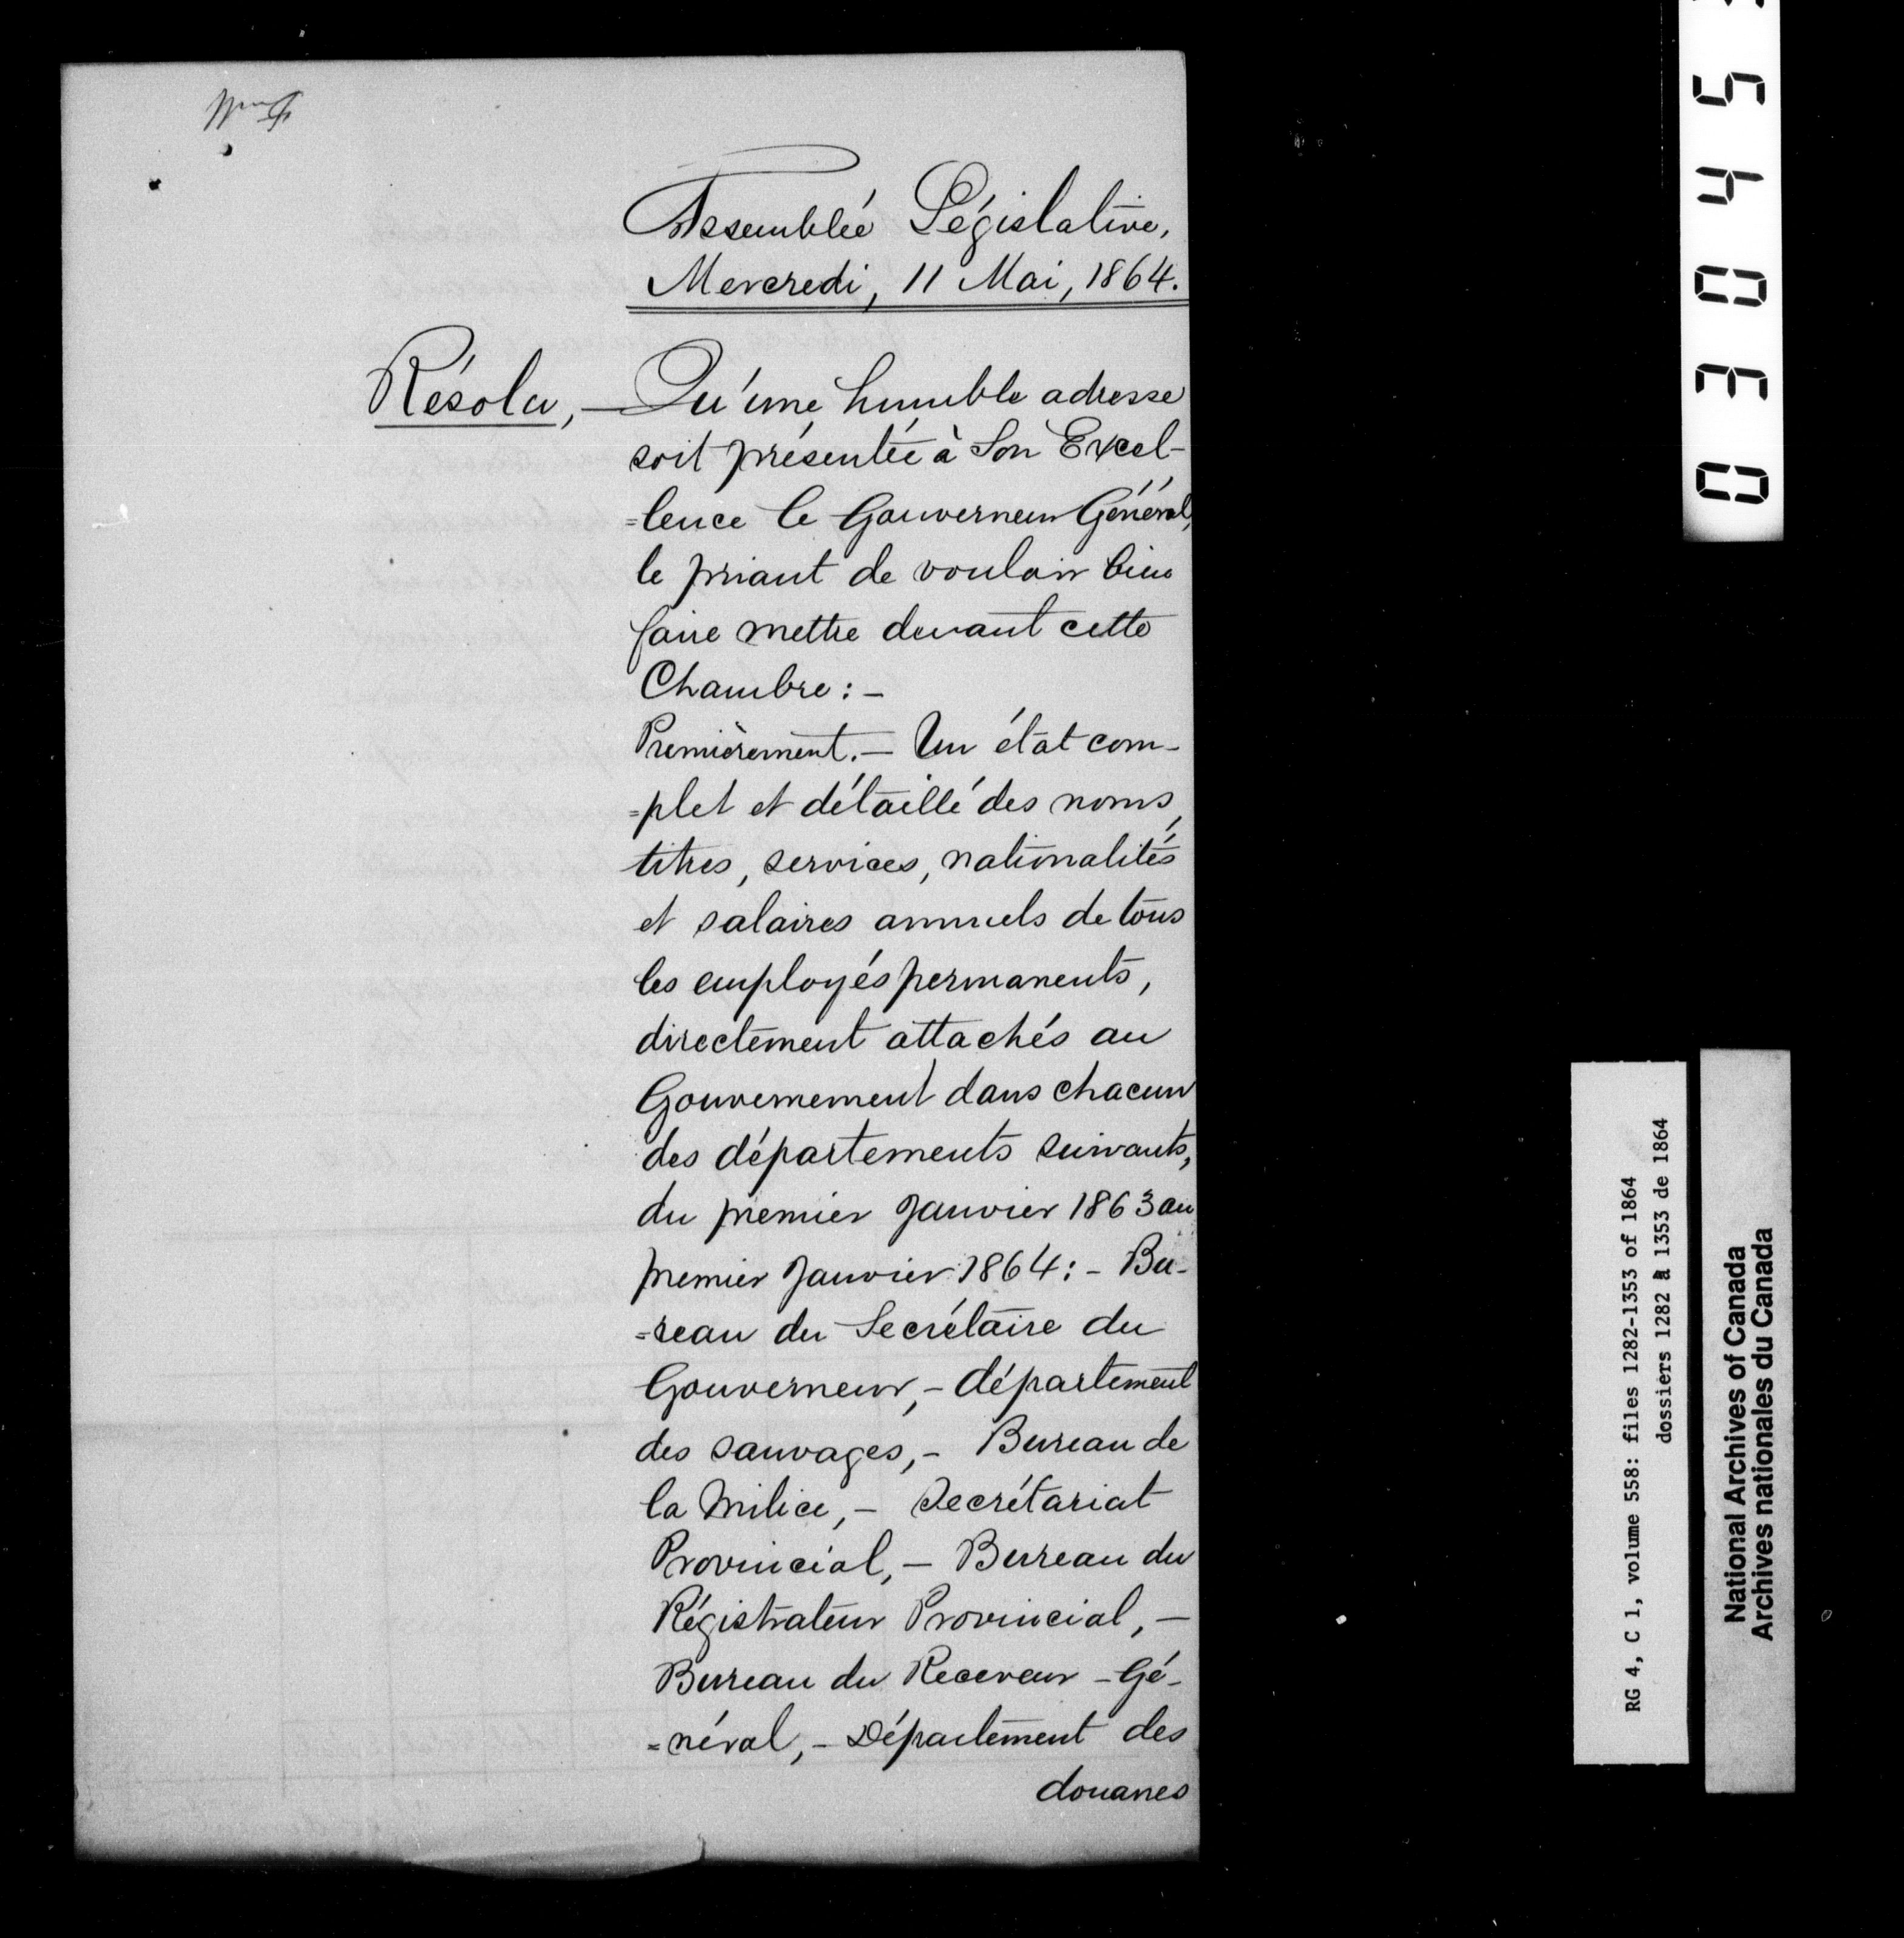 Assemblée Législative,
Mercredi, 11 Mai, 1864.
Résolu, — Qu'une humble adresse
soit présentée à Son Excel-
=lence le Gouverneur Général,
le priant de vouloir bien
faire mettre devant cette
Chambre : -
Premièrement. — Un état com-
=plet et détaillé des noms,
titres, services, nationalités
et salaires annuels de tous
les employés permanents,
directement attachés au
Gouvernement dans chacun
des départements suivants,
du premier Janvier 1863 au
premier Janvier 1864 : - Bu-
=reau du Secrétaire du
Gouverneur, - département
des sauvages, - Bureau de
la Milice, - Secrétariat
Provincial, - Bureau du
Régistrateur Provincial, -
Bureau du Receveur - Gé-
=néral, - Département des
douanes
03045
RG 4, C 1, volume 558: files 1282-1353 of 1864
dossiers 1282 à 1353 de 1864
National Archives of Canada
Archives nationales du Canada